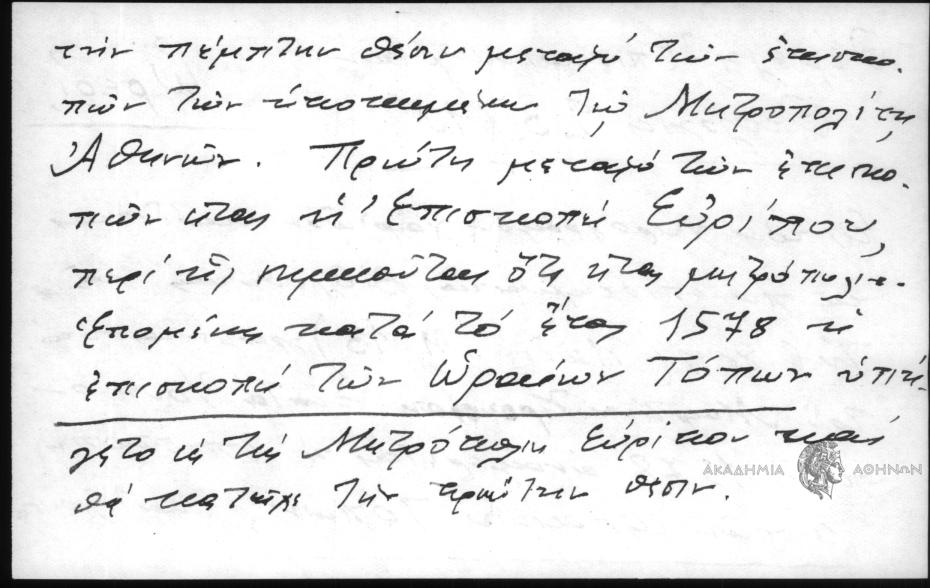 τὴν πέμπτην θέσιν μεταξὺ τῶν ἐπισκο-
πῶν τῶν ὑποκειμένων τῷ Μητροπολίτῃ
Ἀθηνῶν. Πρώτη μεταξὺ τῶν ἐπισκο-
πῶν ἦτο ἡ Ἐπισκοπὴ Εὐρίπου,
περὶ τῆς ὅτι ἦτο μητρόπολις.
Ἑπομένως κατὰ τὸ ἔτος 1578 ἡ
ἐπισκοπὴ τῶν Ὡραίων Τόπων ὑπή-
γετο εἰς τὴν Μητρόπολιν Εὐρίπου καὶ
θὰ κατεῖχε τὴν πρώτην θέσιν.
ΑΚΑΔΗΜΙΑ ΑΘΗΝΩΝ